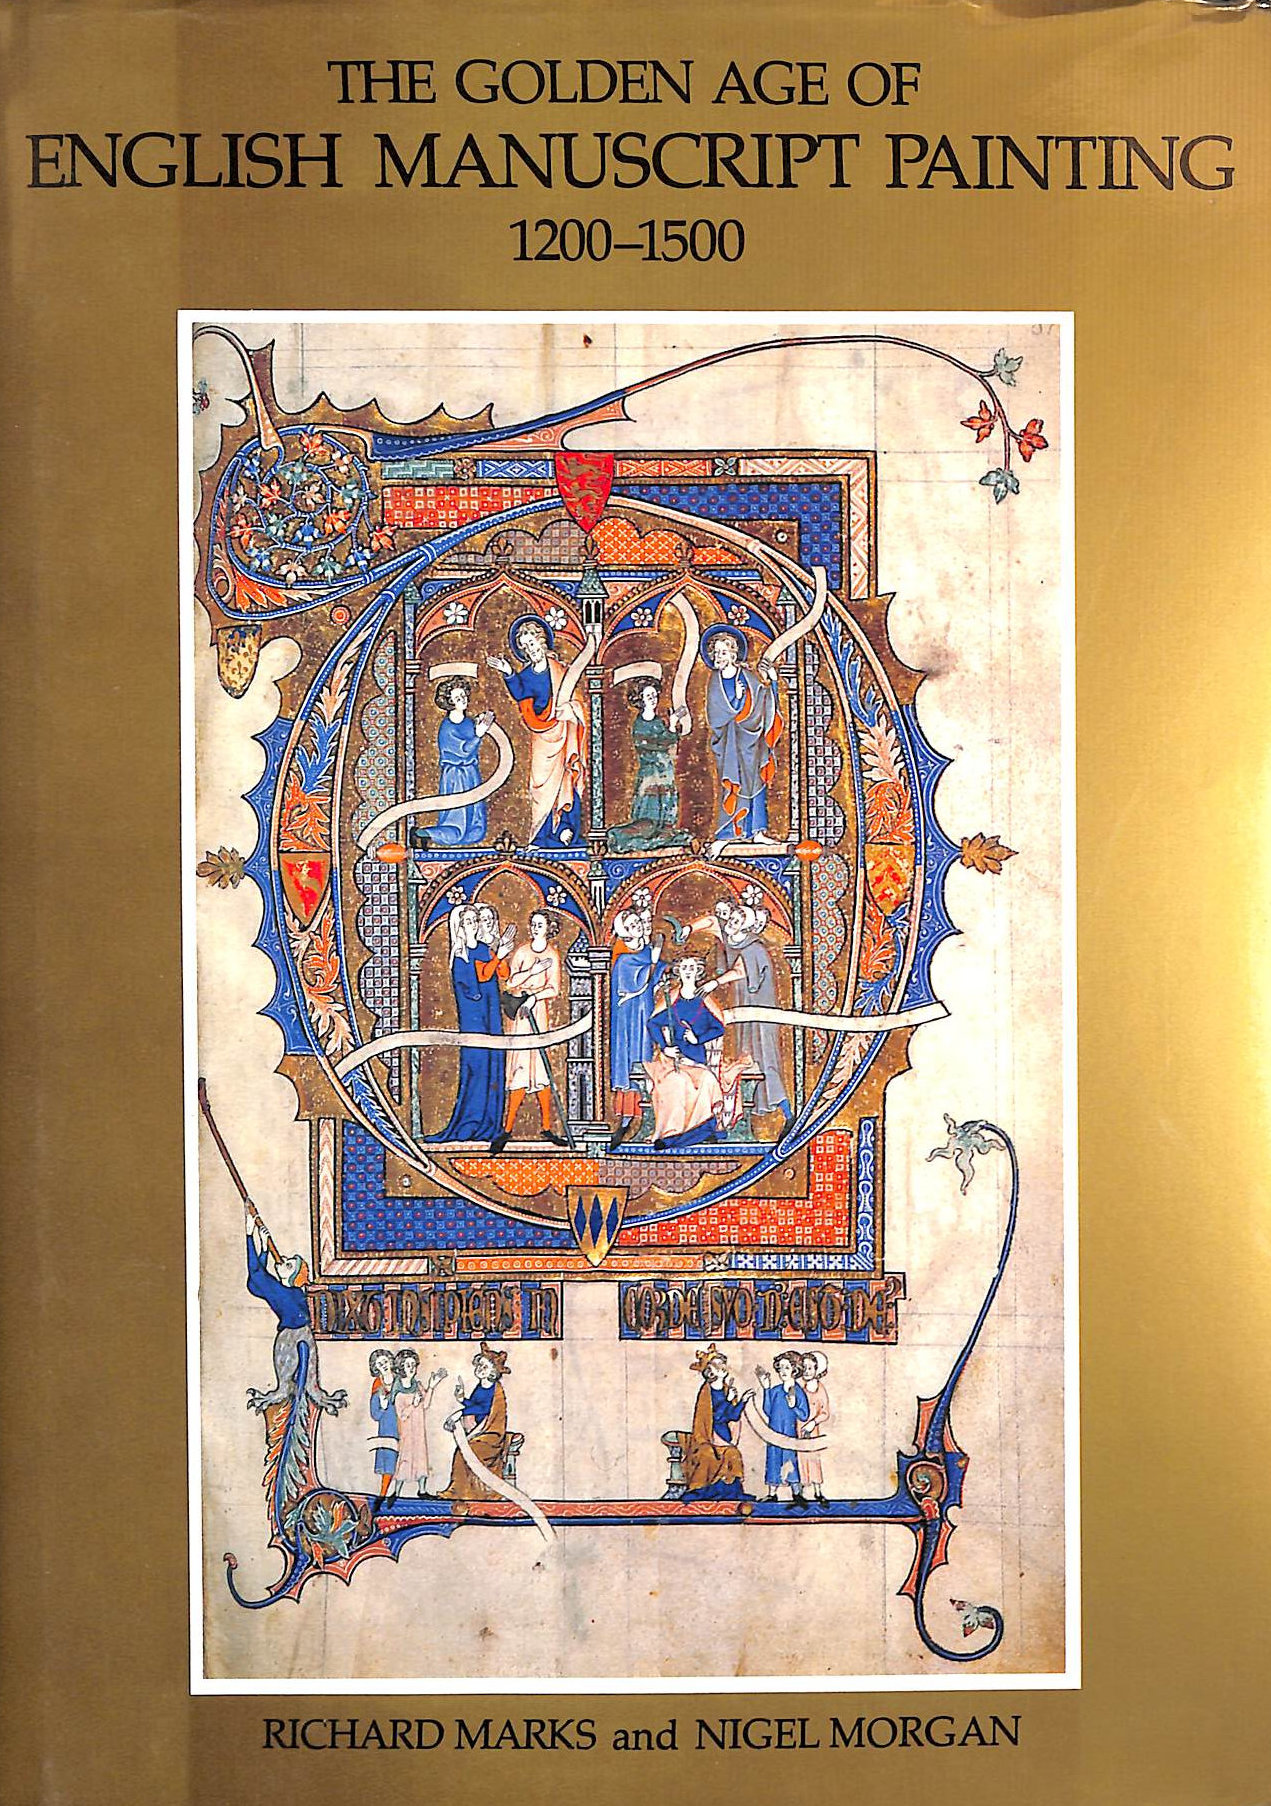 THE GOLDEN AGE OF
ENGLISH MANUSCRIPT PAINTING
1200–1500
INSIPIENS IN CORDE SVO
RICHARD MARKS and NIGEL MORGAN